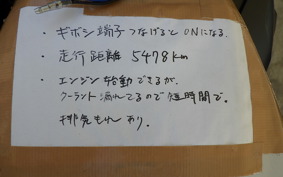 ・ギボシ端子つなげるとONになる.
・走行距離 5478km
・エンジン始動できるが、
クーラント漏れてるので短時間で。
排気もれあり.